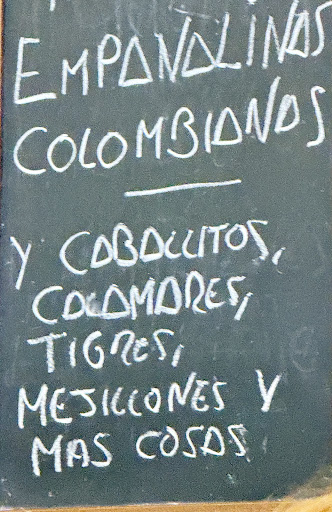 EMPANALINAS
COLOMBIANAS
Y CABALLITOS,
CALAMARES,
TIGRES,
MEJILLONES Y
MAS COSAS